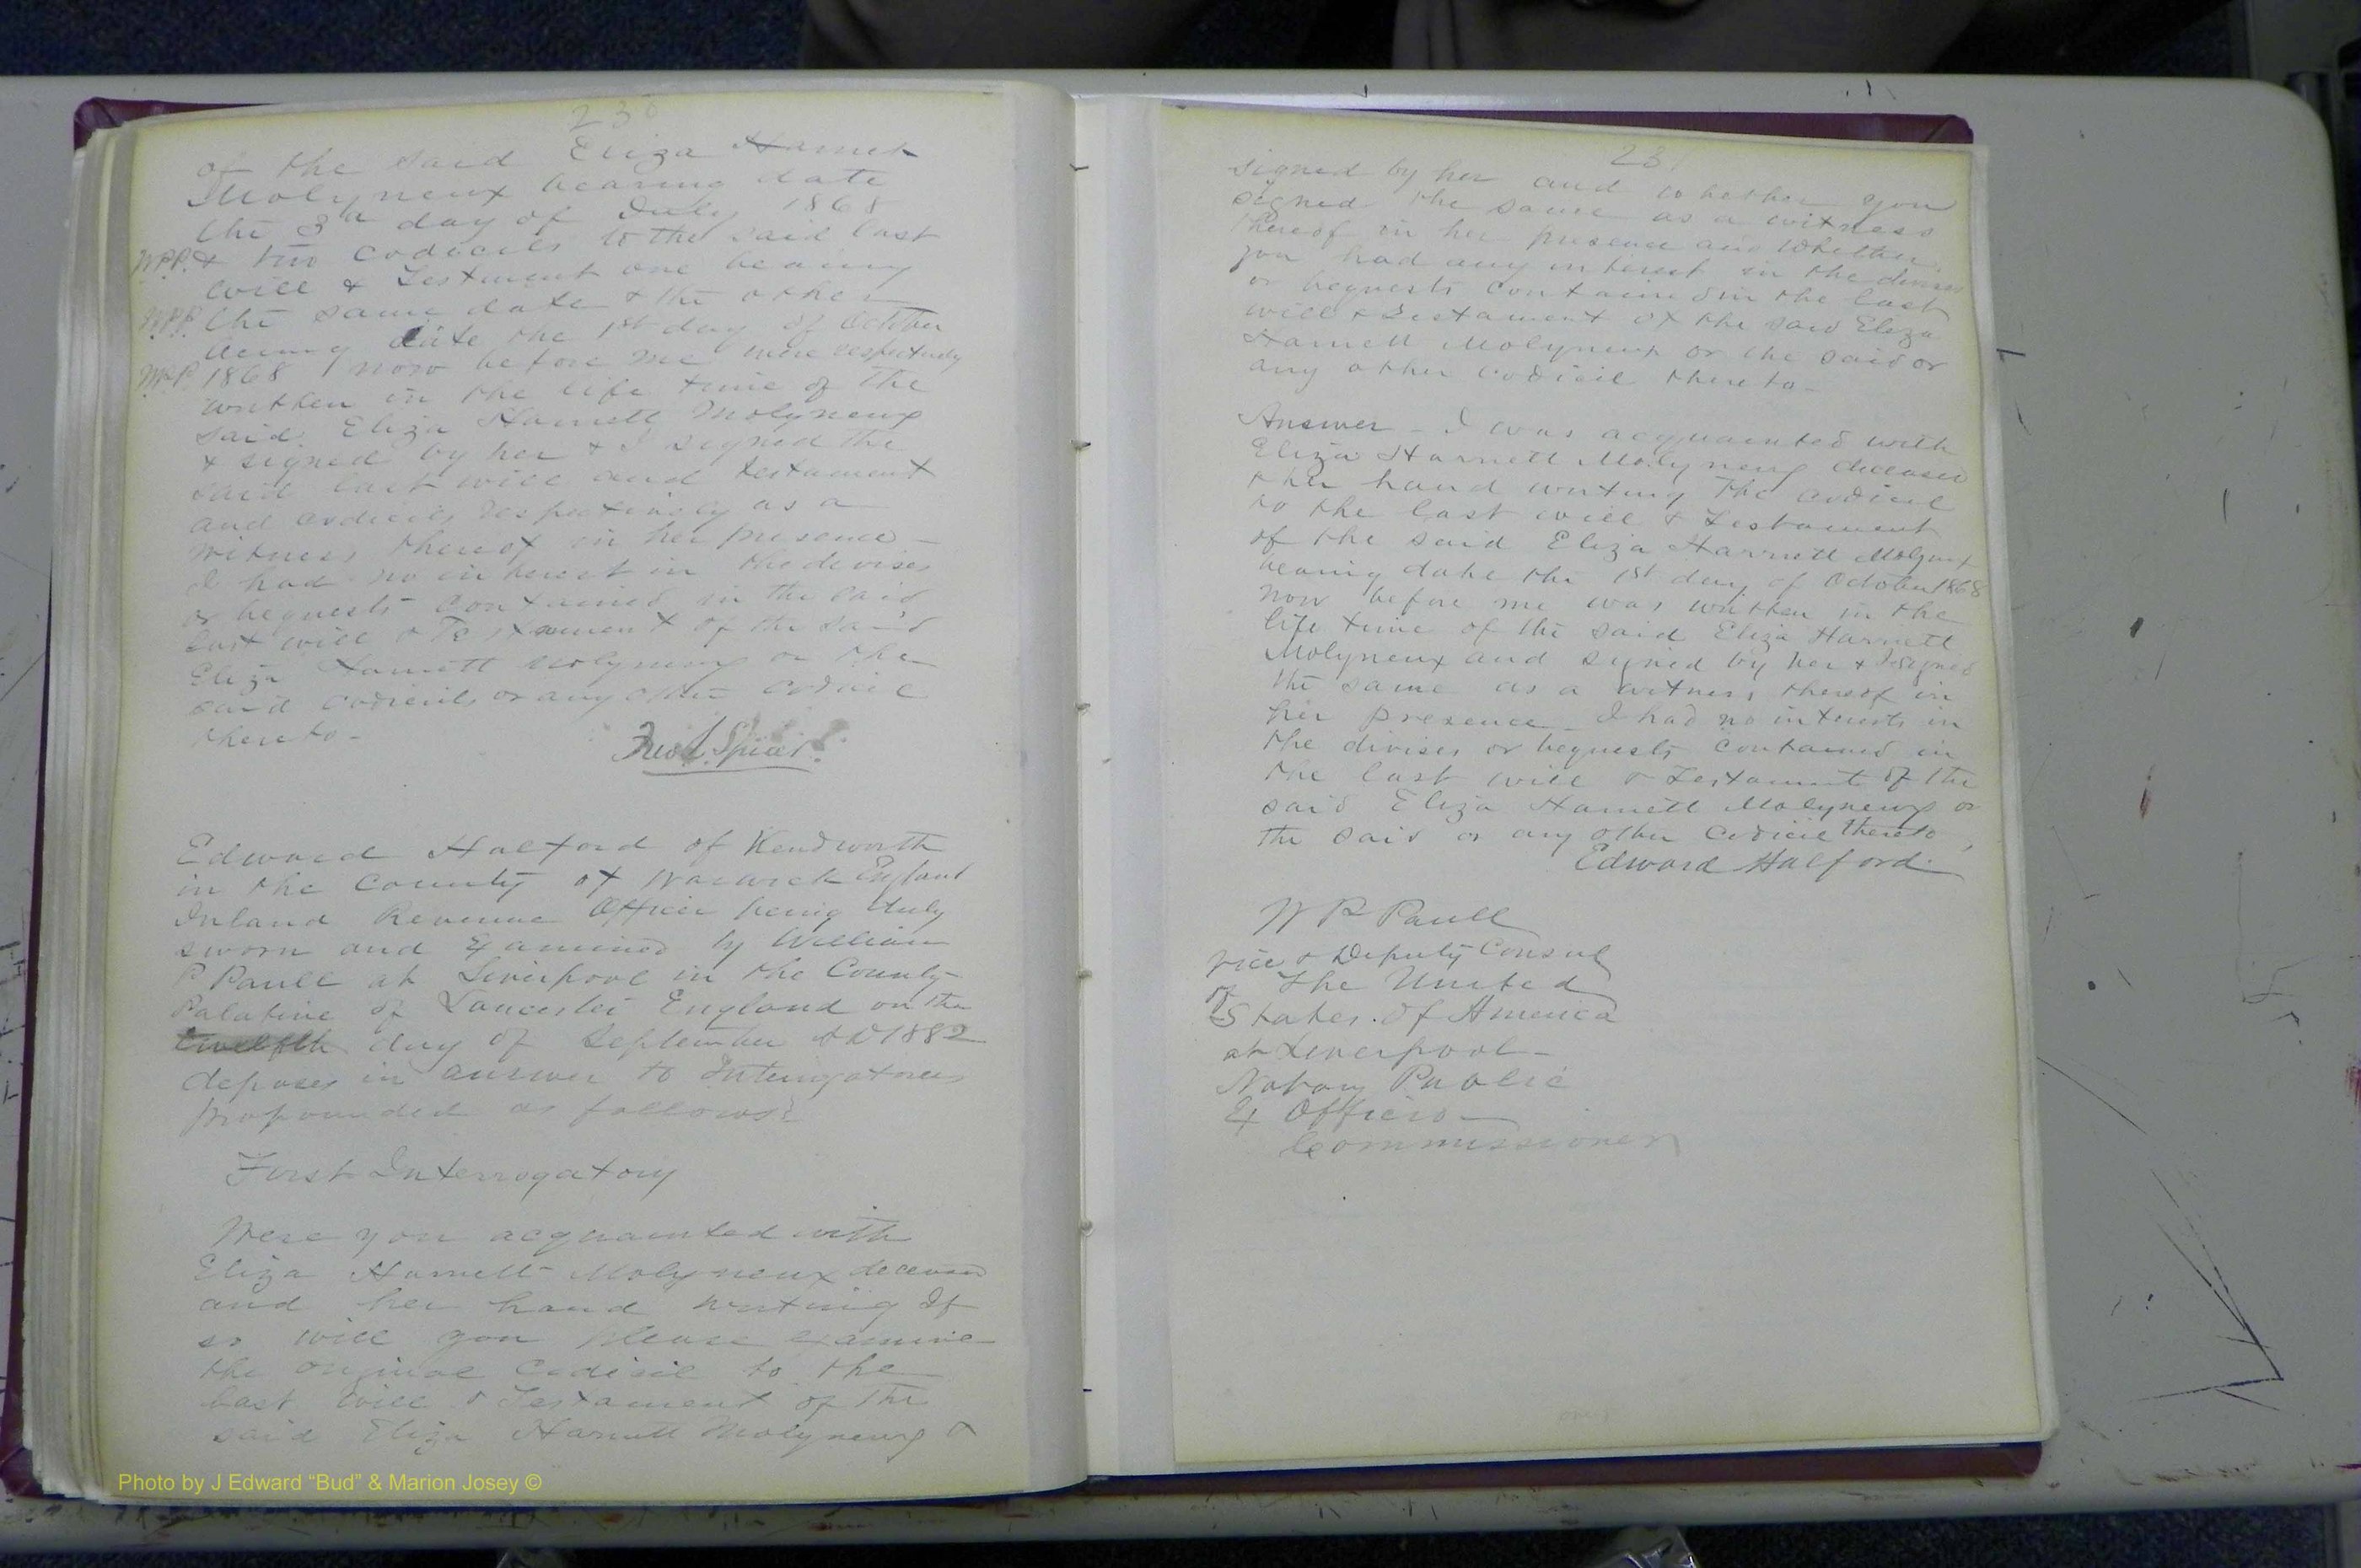 230
of the said Eliza Harnett
Molyneux bearing date
the 3d day of July 1868
W.P.P. & two codicils to the said last
will & Testament one bearing
W.P.P. the same date & the other
bearing date the 1st day of October
W.P.P. 1868 now before me were respectively
written in the life time of the
said Eliza Harnett Molyneux
& signed by her & I signed the
said last will and testament
and codicils respectively as a
witness thereof in her presence -
I had no interest in the devises
or bequests contained in the said
last will & Testament of the said
Eliza Harnett Molyneux or the
said codicils or any other codicil
thereto -
Fred. Spicer
Edward Halford of Kendworth
in the County of Warwick England
Inland Revenue Officer being duly
sworn and Examined by William
P Paull at Liverpool in the County
Palatine of Lancester England on the
twelfth day of September AD 1882
deposes in answer to Interrogatories
propounded as follows:
First Interrogatory
Were you acquainted with
Eliza Harnett Molyneux deceased
and her hand writing If
so will you please examine
the original Codicil to the
last will & Testament of the
said Eliza Harnett Molyneux &
231
signed by her and whether you
signed the same as a witness
thereof in her presence and Whether
you had any interest in the devises
or bequests contained in the last
will & Testament of the said Eliza
Harnett Molyneux or the said or
any other codicil thereto -
Answer - I was acquainted with
Eliza Harnett Molyneux deceased
& her hand writing The codicil
to the last will & Testament
of the said Eliza Harnett Molyneux
bearing date the 1st day of October 1868
now before me was written in the
life time of the said Eliza Harnett
Molyneux and signed by her & I signed
the same as a witness thereof in
her presence I had no interests in
the divises or bequests contained in
the last will & Testament of the
said Eliza Harnett Molyneux or
the said or any other Codicil thereto,
Edward Halford
W P Paull
Vice & Deputy Consul
of the United
States of America
at Liverpool -
Notary Public
Ex Officio
Commissioner
Photo by J Edward “Bud” & Marion Josey ©